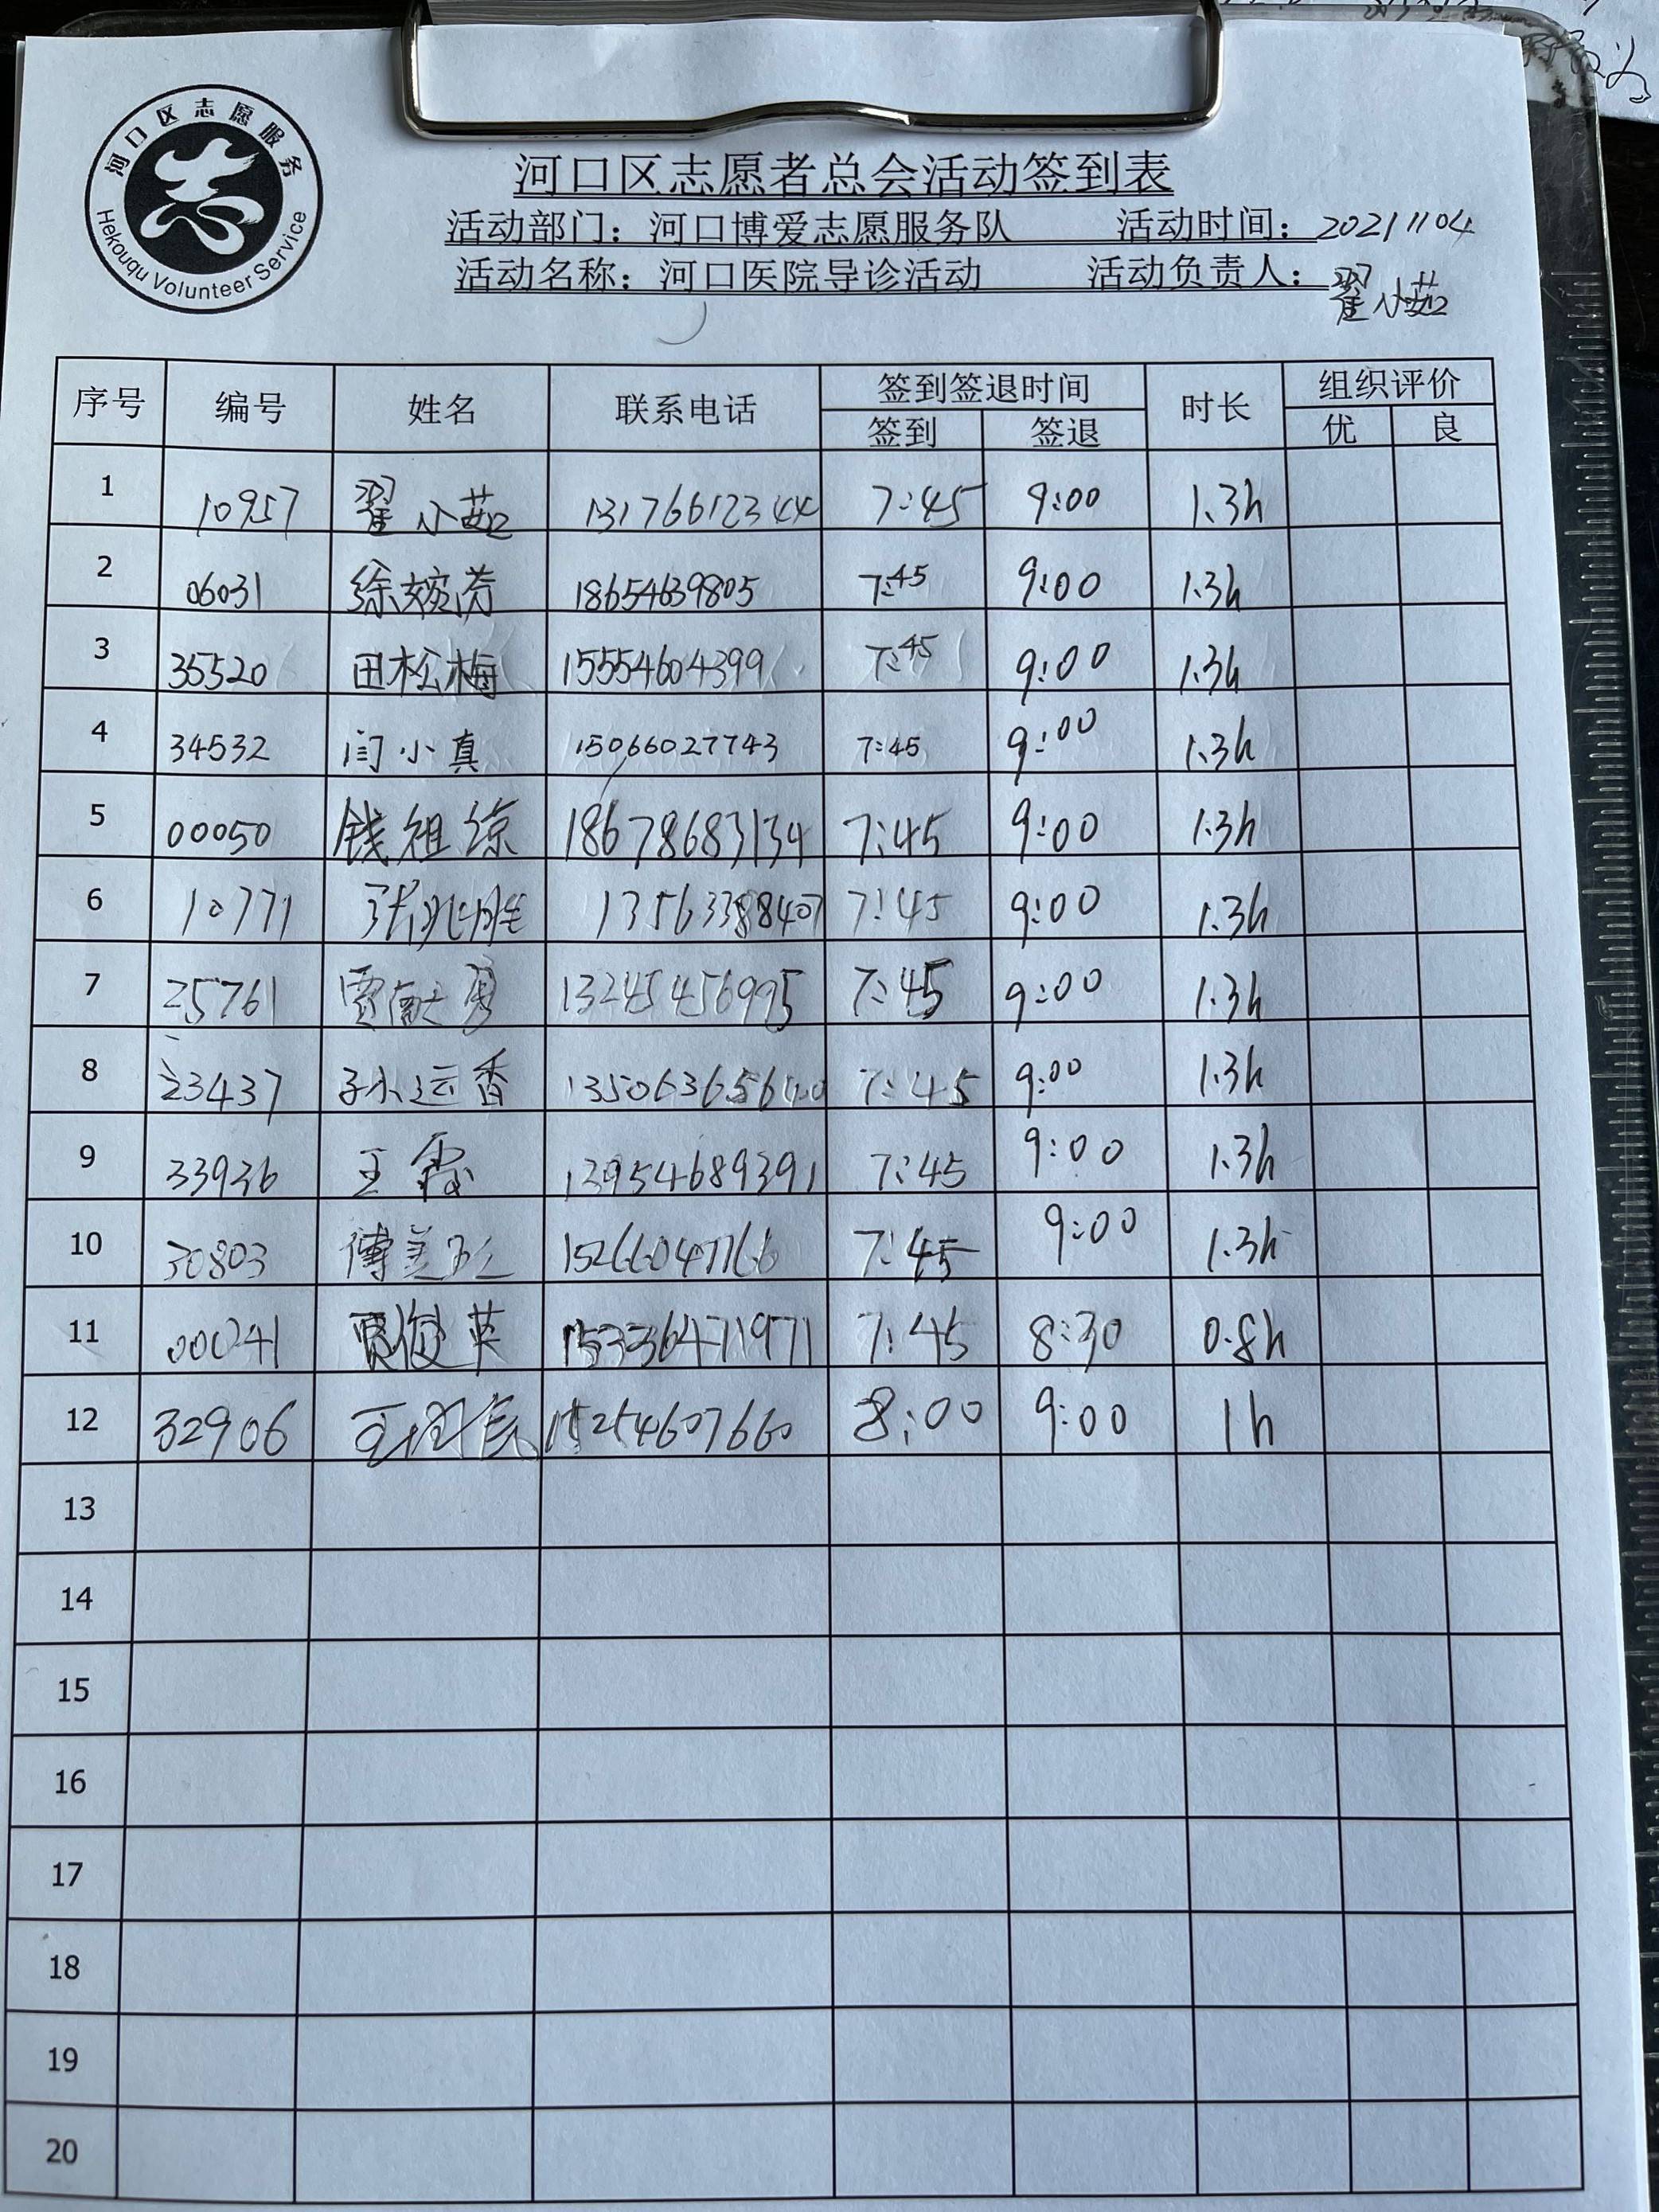 河口区志愿服务
Hekouqu Volunteer Service
河口区志愿者总会活动签到表
活动部门：河口博爱志愿服务队 活动时间：20211104
活动名称：河口医院导诊活动 活动负责人：翟小茹
序号 编号 姓名 联系电话 签到签退时间 时长 组织评价
签到 签退 优 良
1 10957 翟小茹 13176612344 7:45 9:00 1.3h
2 06031 徐婉芳 18654639805 7:45 9:00 1.3h
3 35520 田松梅 15554604399 7:45 9:00 1.3h
4 34532 闫小真 15066027743 7:45 9:00 1.3h
5 00050 钱祖琼 18678683134 7:45 9:00 1.3h
6 10771 张兆胜 13563388407 7:45 9:00 1.3h
7 25761 贾献勇 13245456995 7:45 9:00 1.3h
8 23437 孙运香 13506365640 7:45 9:00 1.3h
9 33936 王霞 13954689391 7:45 9:00 1.3h
10 30803 傅美玉 15266047166 7:45 9:00 1.3h
11 000241 贾俊英 15336471971 7:45 8:30 0.8h
12 32906 15254607660 8:00 9:00 1h
13
14
15
16
17
18
19
20